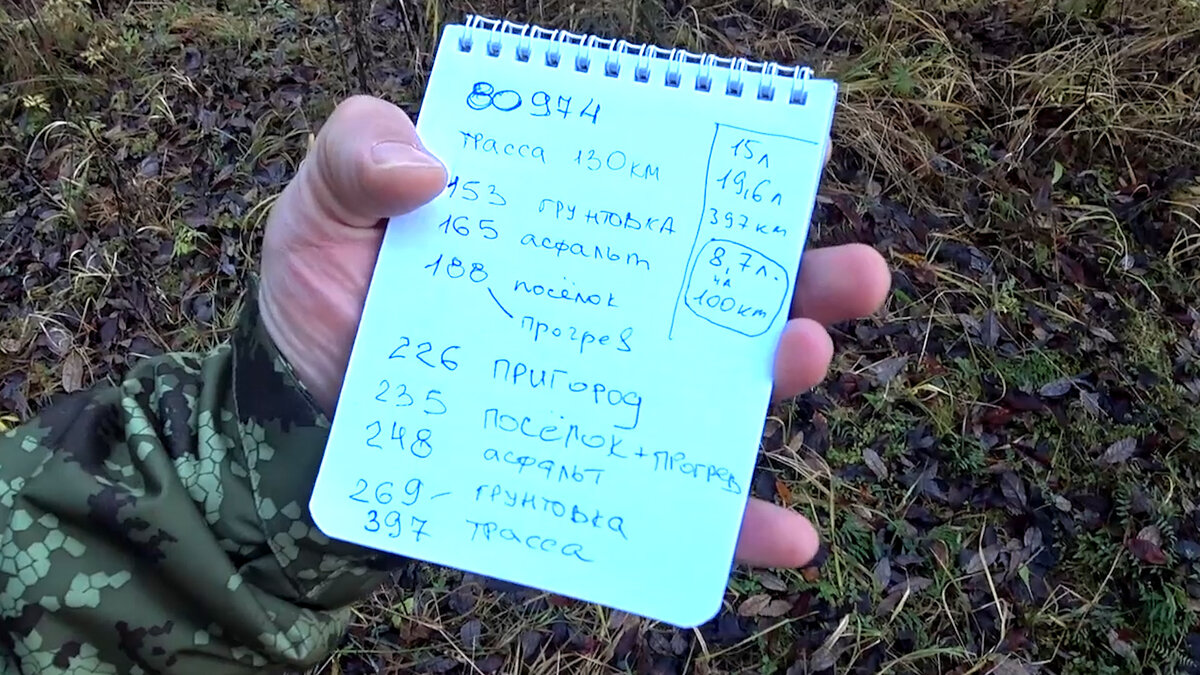 80974
трасса 130км
153 грунтовка
165 асфальт
188 посёлок
прогрев
226 пригород
235 посёлок + прогрев
248 асфальт
269 - грунтовка
397 трасса
15л
19,6л
397км
8,7л.
100км